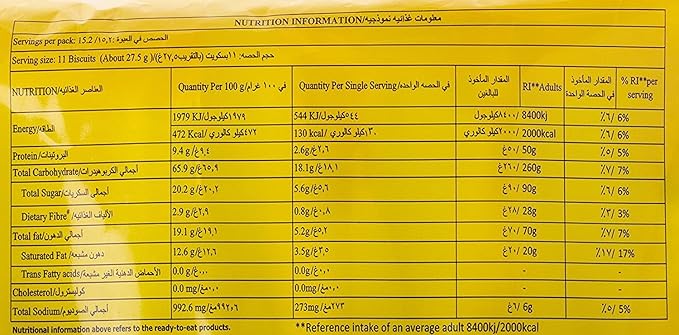 NUTRITION INFORMATION/معلومات غذائيه نموذجيه
Servings per pack: 15.2 /١٥,٢: الحصص في العبوة
Serving size: 11 Biscuits (About 27.5 g )/(حجم الحصه: ١١بسكويت (بالتقريب٢٧,٥غ
NUTRITION/العناصر الغذائيه Quantity Per 100 g/في ١٠٠ غرام Quantity Per Single Serving/في الحصه الواحده المقدار المأخوذ للبالغين RI**Adults المقدار المأخوذ في الحصة الواحدة % RI**per serving
Energy/الطاقه 1979 KJ/١٩٧٩كيلوجول 544 KJ/٥٤٤كيلوجول ٨٤٠٠كيلوجول/ 8400kj ٦٪/ 6%
472 Kcal/ ٤٧٢كيلو كالوري 130 kcal/ ١٣٠كيلو كالوري ٢٠٠٠كيلو كالوري/ 2000kcal ٦٪/ 6%
Protein/البروتينات 9.4 g/٩,٤غ 2.6g/٢,٦غ ٥٠غ/ 50g ٥٪/ 5%
Total Carbohydrate/أجمالي الكربوهيدرات 65.9 g/٦٥,٩غ 18.1g/١٨,١غ ٢٦٠غ/ 260g ٧٪/ 7%
Total Sugar/أجمالى السكريات 20.2 g/٢٠,٢غ 5.6g/٥,٦غ ٩٠غ/ 90g ٦٪/ 6%
Dietary Fibre#/الألياف الغذائيه 2.9 g/٢,٩غ 0.8g/٠,٨غ ٢٨غ/ 28g ٣٪/ 3%
Total fat/أجمالي الدهون 19.1 g/١٩,١غ 5.2g/٥,٢غ ٧٠غ/ 70g ٧٪/ 7%
Saturated Fat /دهون مشبعه 12.6 g/١٢,٦غ 3.5g/٣,٥غ ٢٠غ/ 20g ١٧٪/ 17%
Trans Fatty acids/الأحماض الدهنية الغير مشبعة 0.0 g/٠,٠غ 0.0g/٠,٠غ - -
Cholesterol/كوليسترول 0.0 mg/٠,٠مغ 0.0mg/٠,٠مغ - -
Total Sodium/أجمالي الصوديوم 992.6 mg/٩٩٢,٦مغ 273mg/٢٧٣مغ ٦غ/ 6g ٥٪/ 5%
Nutritional information above refers to the ready-to-eat products. **Reference intake of an average adult 8400kj/2000kcal